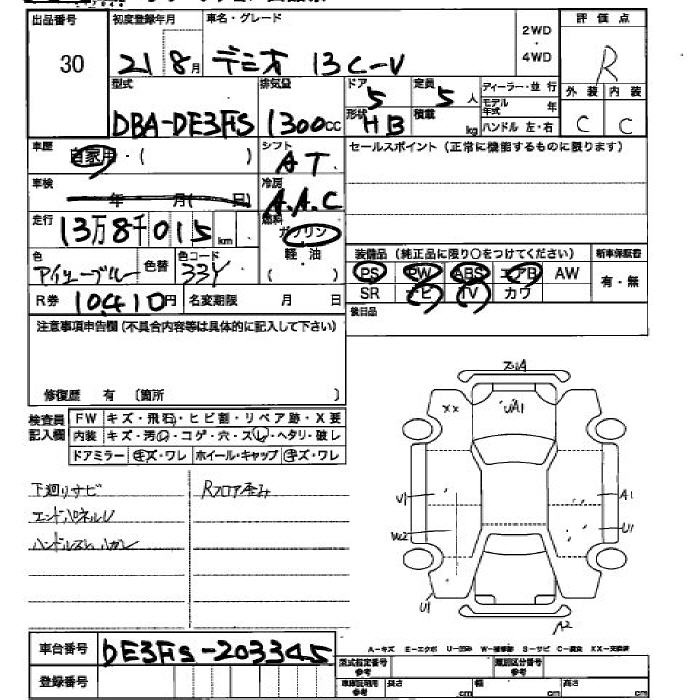 出品番号
30
初度登録年月
21 8月
車名・グレード
デミオ 13C-V
2WD
・
4WD
評価点
R
外装 内装
C C
型式
DBA-DE3FS
排気量
1300cc
ドア
5
形状
HB
定員
5人
積載
kg
ディーラー・並行
モデル年式 年
ハンドル 左・右
車歴
自家用・( )
シフト
AT
セールスポイント(正常に機能するものに限ります)
車検
年 月(日)
冷房
A.A.C
走行
13万8千015km
燃料
ガソリン
軽・油
( )
色
色替
色コード
33Y
装備品(純正品に限り○をつけてください)
新車保証書
PS PW ABS エアB AW
有・無
SR ナビ TV カワ
R券 10410円
名変期限 月 日
後日品
注意事項申告欄(不具合内容等は具体的に記入して下さい)
修復歴 有 〔箇所 〕
検査員
記入欄
FW キズ・飛石・ヒビ割・リペア跡・X要
内装 キズ・汚・コゲ・穴・スレ・ヘタリ・破レ
ドアミラー キズ・ワレ ホイール・キャップ キズ・ワレ
下廻りサビ
Rフロア歪み
エンドパネルU
XX
UA1
V1
A1
U1
U1
A2
車台番号
DE3FS-203345
登録番号
A-キズ E-エクボ U-凹み W-補修跡 S-サビ C-腐食 XX-交換済
型式指定番号
参考
類別区分番号
参考
車庫証明用
参考
長さ cm
幅 cm
高さ cm